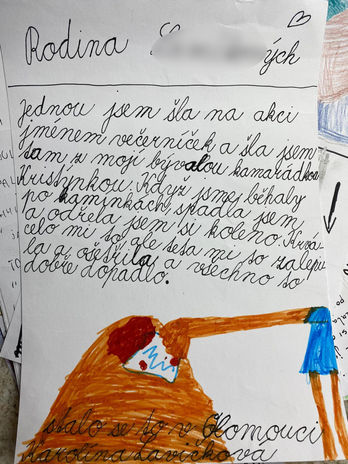 Rodina ých
jednou jsem šla na akci
jménem večerníček a šla jsem
tam z mojí bývalou kamarádkou
Kristýnkou. Když jsme běhaly
po kamínkách, spadla jsem
a odřela jsem si koleno. Krvá-
celo mi to, ale teta mi to zalepi-
la a ošetřila a všechno to
dobře dopadlo.
stalo se to v Olomouci
Karolína Lavičková